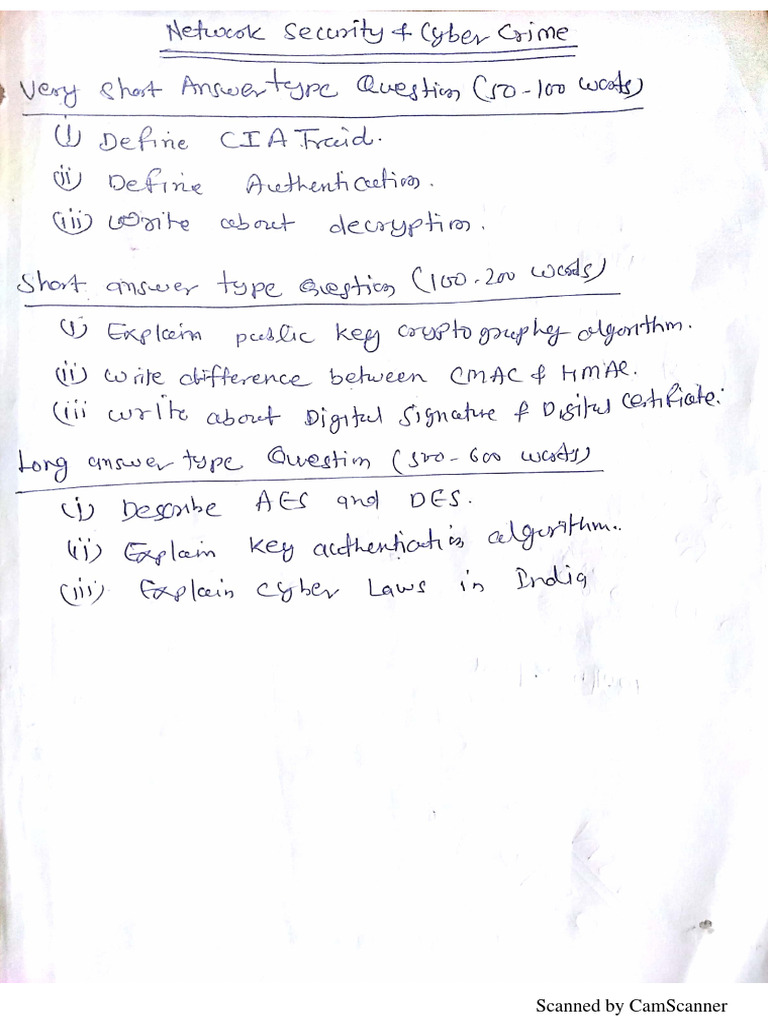 Network Security & Cyber Crime
Very Short Answer type Question (50-100 words)
(i) Define CIA Traid.
(ii) Define Authentication.
(iii) Write about decryption.
Short answer type Question (100-200 words)
(i) Explain public key cryptography algorithm.
(ii) Write difference between CMAC & HMAC.
(iii Write about Digital Signature & Digital Certificate.
Long answer type Question (500-600 words)
(i) Describe AES and DES.
(ii) Explain key authentication algorithm.
(iii) Explain cyber Laws in India
Scanned by CamScanner